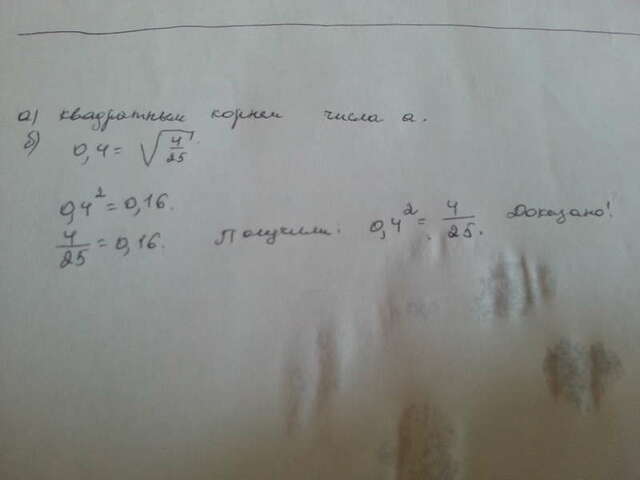 а) квадратным корнем числа a.
б) 0,4 = √4/25
0,4² = 0,16.
4/25 = 0,16. Получили: 0,4² = 4/25. Доказано!